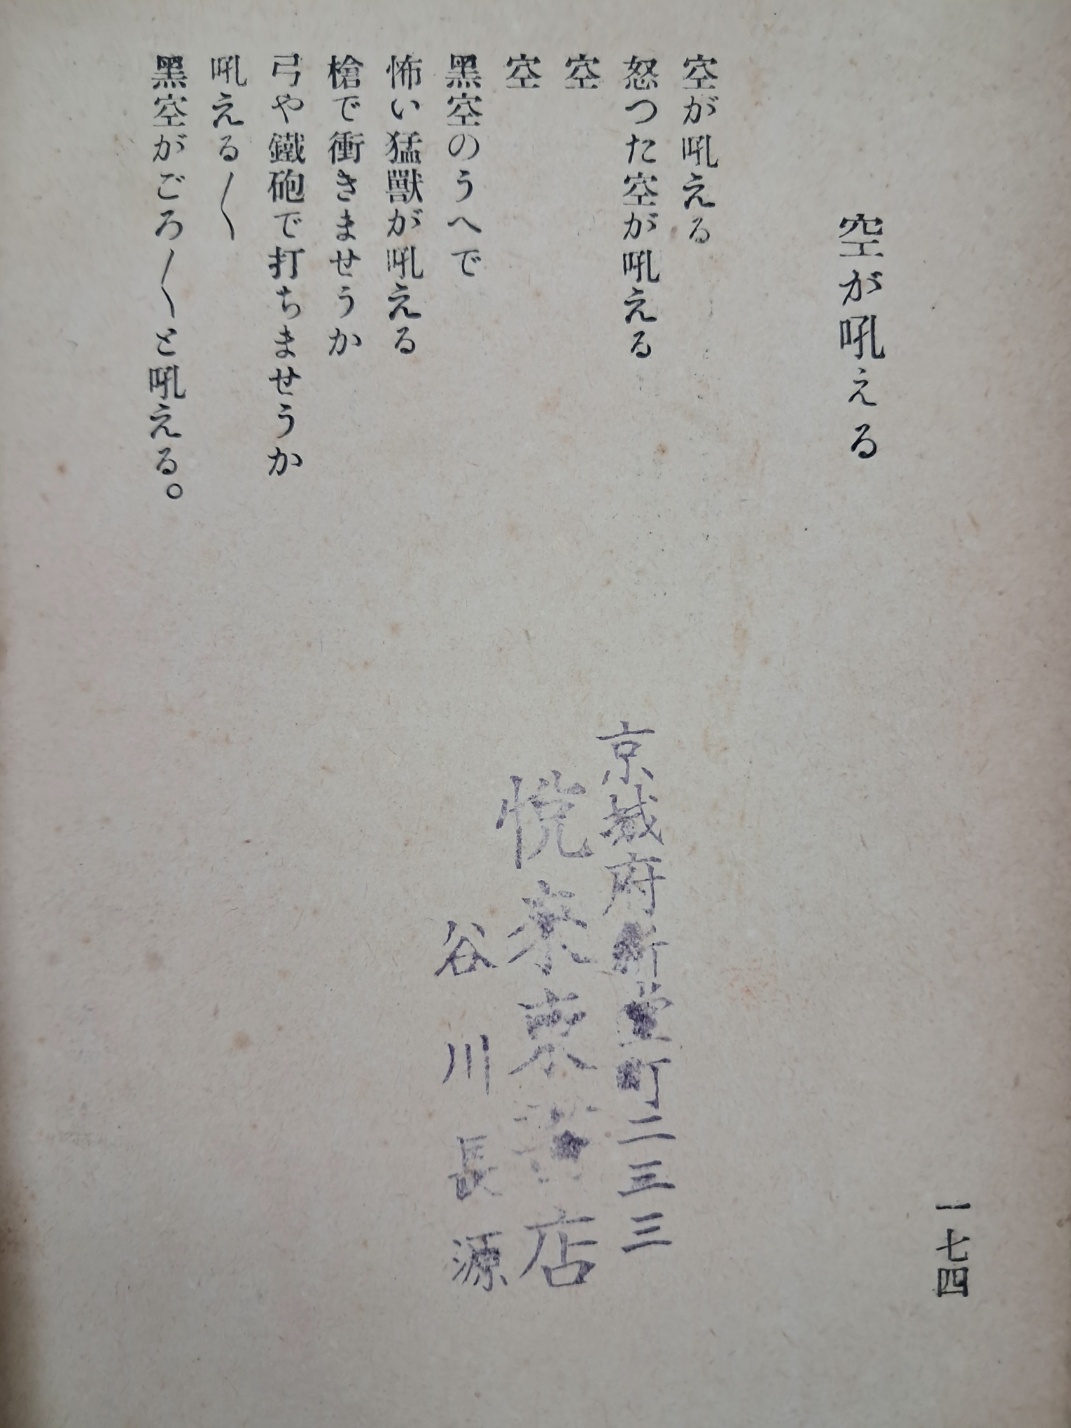 空が吼える
空が吼える
怒つた空が吼える
空
空
黑空のうへで
怖い猛獸が吼える
槍で衝きませうか
弓や鐵砲で打ちませうか
吼える〱
黑空がごろ〱と吼える。
京城府新堂町二三三
悦來東店
谷川長源
一七四